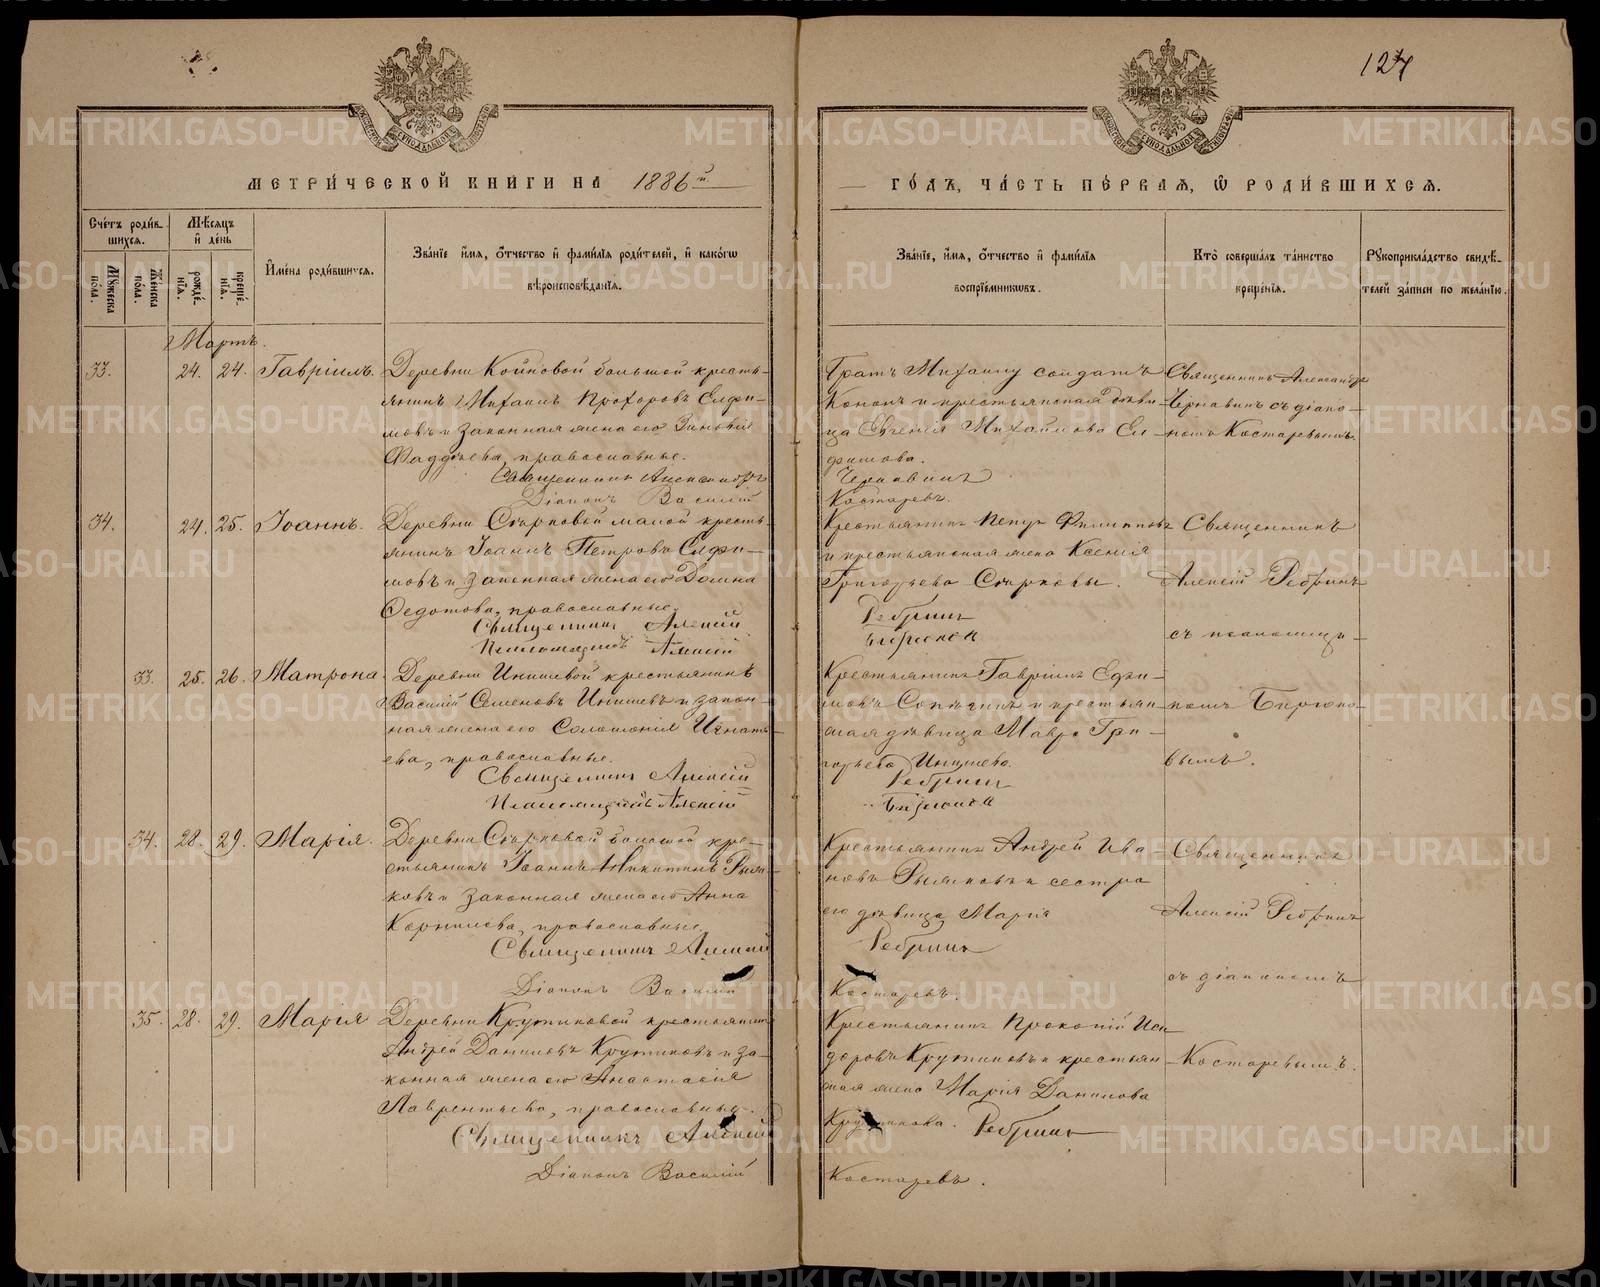 127
МЕТРИ́ЧЕСКОЙ КНИГИ НА 1886 й.
ГО́ДЪ, ЧА́СТЬ ПЕ́РВАЯ, Ѡ РОДИ́ВШИХСЯ.
Сче́тъ роди́в-
шихся.
Мѣ́сяцъ
и́ де́нь
Му́жеска по́ла.
Же́нска по́ла.
рожде́-
нїя.
креще́-
нїя.
И҆́мена роди́вшихся.
Зва́нїе и҆́мя, о҆́тчество и҆ фами́лїя роди́телей, и҆ како́гѡ
вѣроисповѣ́данїя.
Зва́нїе, и҆́мя, о҆́тчество и҆ фами́лїя
воспрїе́мникѡвъ.
Кто̀ соверша́лъ та́инство
креще́нїя.
Рꙋкоприкла́дство свидѣ́-
телей за́писи по жела́нїю.
Мартъ.
33.
24.
24.
Гавріилъ.
Деревни Койновой большой кресть-
янинъ Михаилъ Прохоровъ Елфи-
мовъ и законная жена его Зиновія
Фаддѣева, православные.
Священникъ Александръ
Діаконъ Василій
Братъ Михаилу солдатъ
Кононъ и крестьянская дѣви-
ца Евгенія Михаилова Ел-
фимова.
Чернавинъ
Костаревъ.
Священникъ Александръ
Чернавинъ съ діако-
номъ Костаревымъ.
34.
24.
25.
Іоаннъ.
Деревни Сѣрковой малой кресть-
янинъ Іоаннъ Петровъ Елфи-
мовъ и законная жена его Домна
Ѳедотова, православные.
Священникъ Алексій
Псаломщикъ Алексій
Крестьянинъ Филипповъ
и крестьянская жена Ксенія
Григорьева Сѣрковы.
Ребринъ
Бирюковъ
Священникъ
Алексій Ребринъ
съ псаломщи-
33.
25.
26.
Матрона.
Деревни Инишевой крестьянинъ
Василій Семеновъ Инишевъ и закон-
ная жена его Соломонія Игнать-
ева, православные.
Священникъ Алексій
Псаломщикъ Алексій
Крестьянинъ Гавріилъ Ефи-
мовъ и крестьян-
ская дѣвица Мавра Гри-
горьева Инишева.
Ребринъ
Бирюковъ
комъ Бирюко-
вымъ.
34.
28.
29.
Марія.
Деревни Сѣрковой большой кре-
стьянинъ Іоаннъ Никитинъ
и законная жена его Анна
Корнилова, православные.
Священникъ Алексій
Діаконъ Василій
Крестьянинъ Андрей Ива-
новъ и сестра
его дѣвица Марія
Ребринъ
Костаревъ.
Священникъ
Алексій Ребринъ
съ діакономъ
35.
28.
29.
Марія
Деревни Крутиковой крестьянинъ
Андрей Даниловъ Крутиковъ и за-
конная жена его Анастасія
Лаврентьева, православные.
Священникъ Алексій
Діаконъ Василій
Крестьянинъ Прокопій Иси-
доровъ Крутиковъ и крестьян-
ская жена Марія Данилова
Крутикова. Ребринъ
Костаревъ.
Костаревымъ.
METRIKI.GASO-URAL.RU